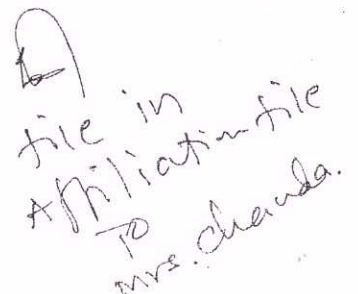 file in
Affiliation file
To
mrs. chanda.